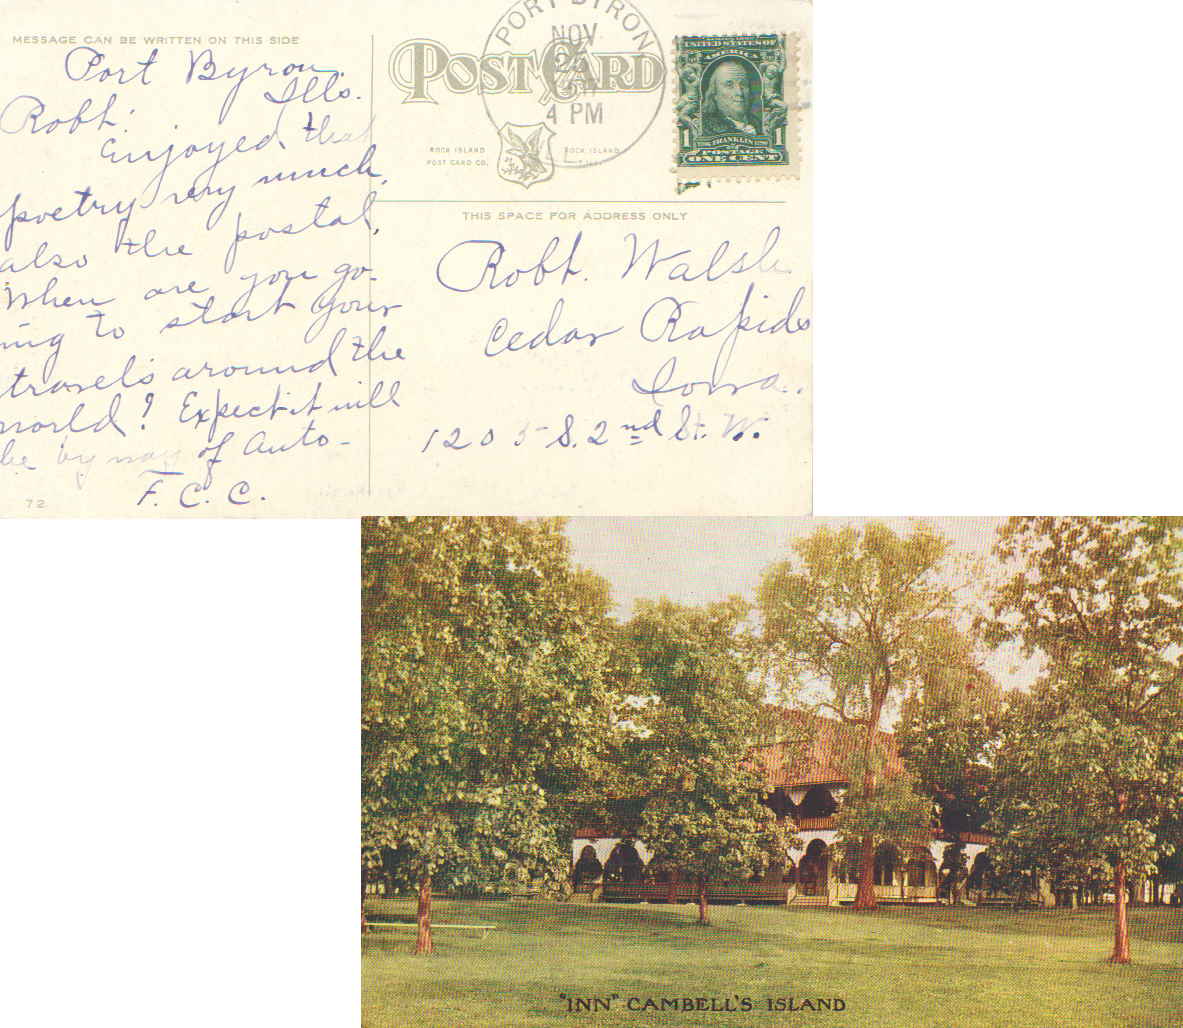 MESSAGE CAN BE WRITTEN ON THIS SIDE
Port Byron.
Ills.
Robt.
Enjoyed that
poetry very much,
also the postal,
When are you go-
ing to start your
travels around the
world? Expect it will
be by way of Auto-
F. C. C.
72
POST CARD
PORT BYRON
NOV
4 PM
ROCK ISLAND
POST CARD CO.
ROCK ISLAND
UNITED STATES OF
AMERICA
1 FRANKLIN 1
POSTAGE
ONE CENT
THIS SPACE FOR ADDRESS ONLY
Robt. Walsh
Cedar Rapids
Iowa.
1205 S. 2nd St. W.
"INN" CAMBELL'S ISLAND